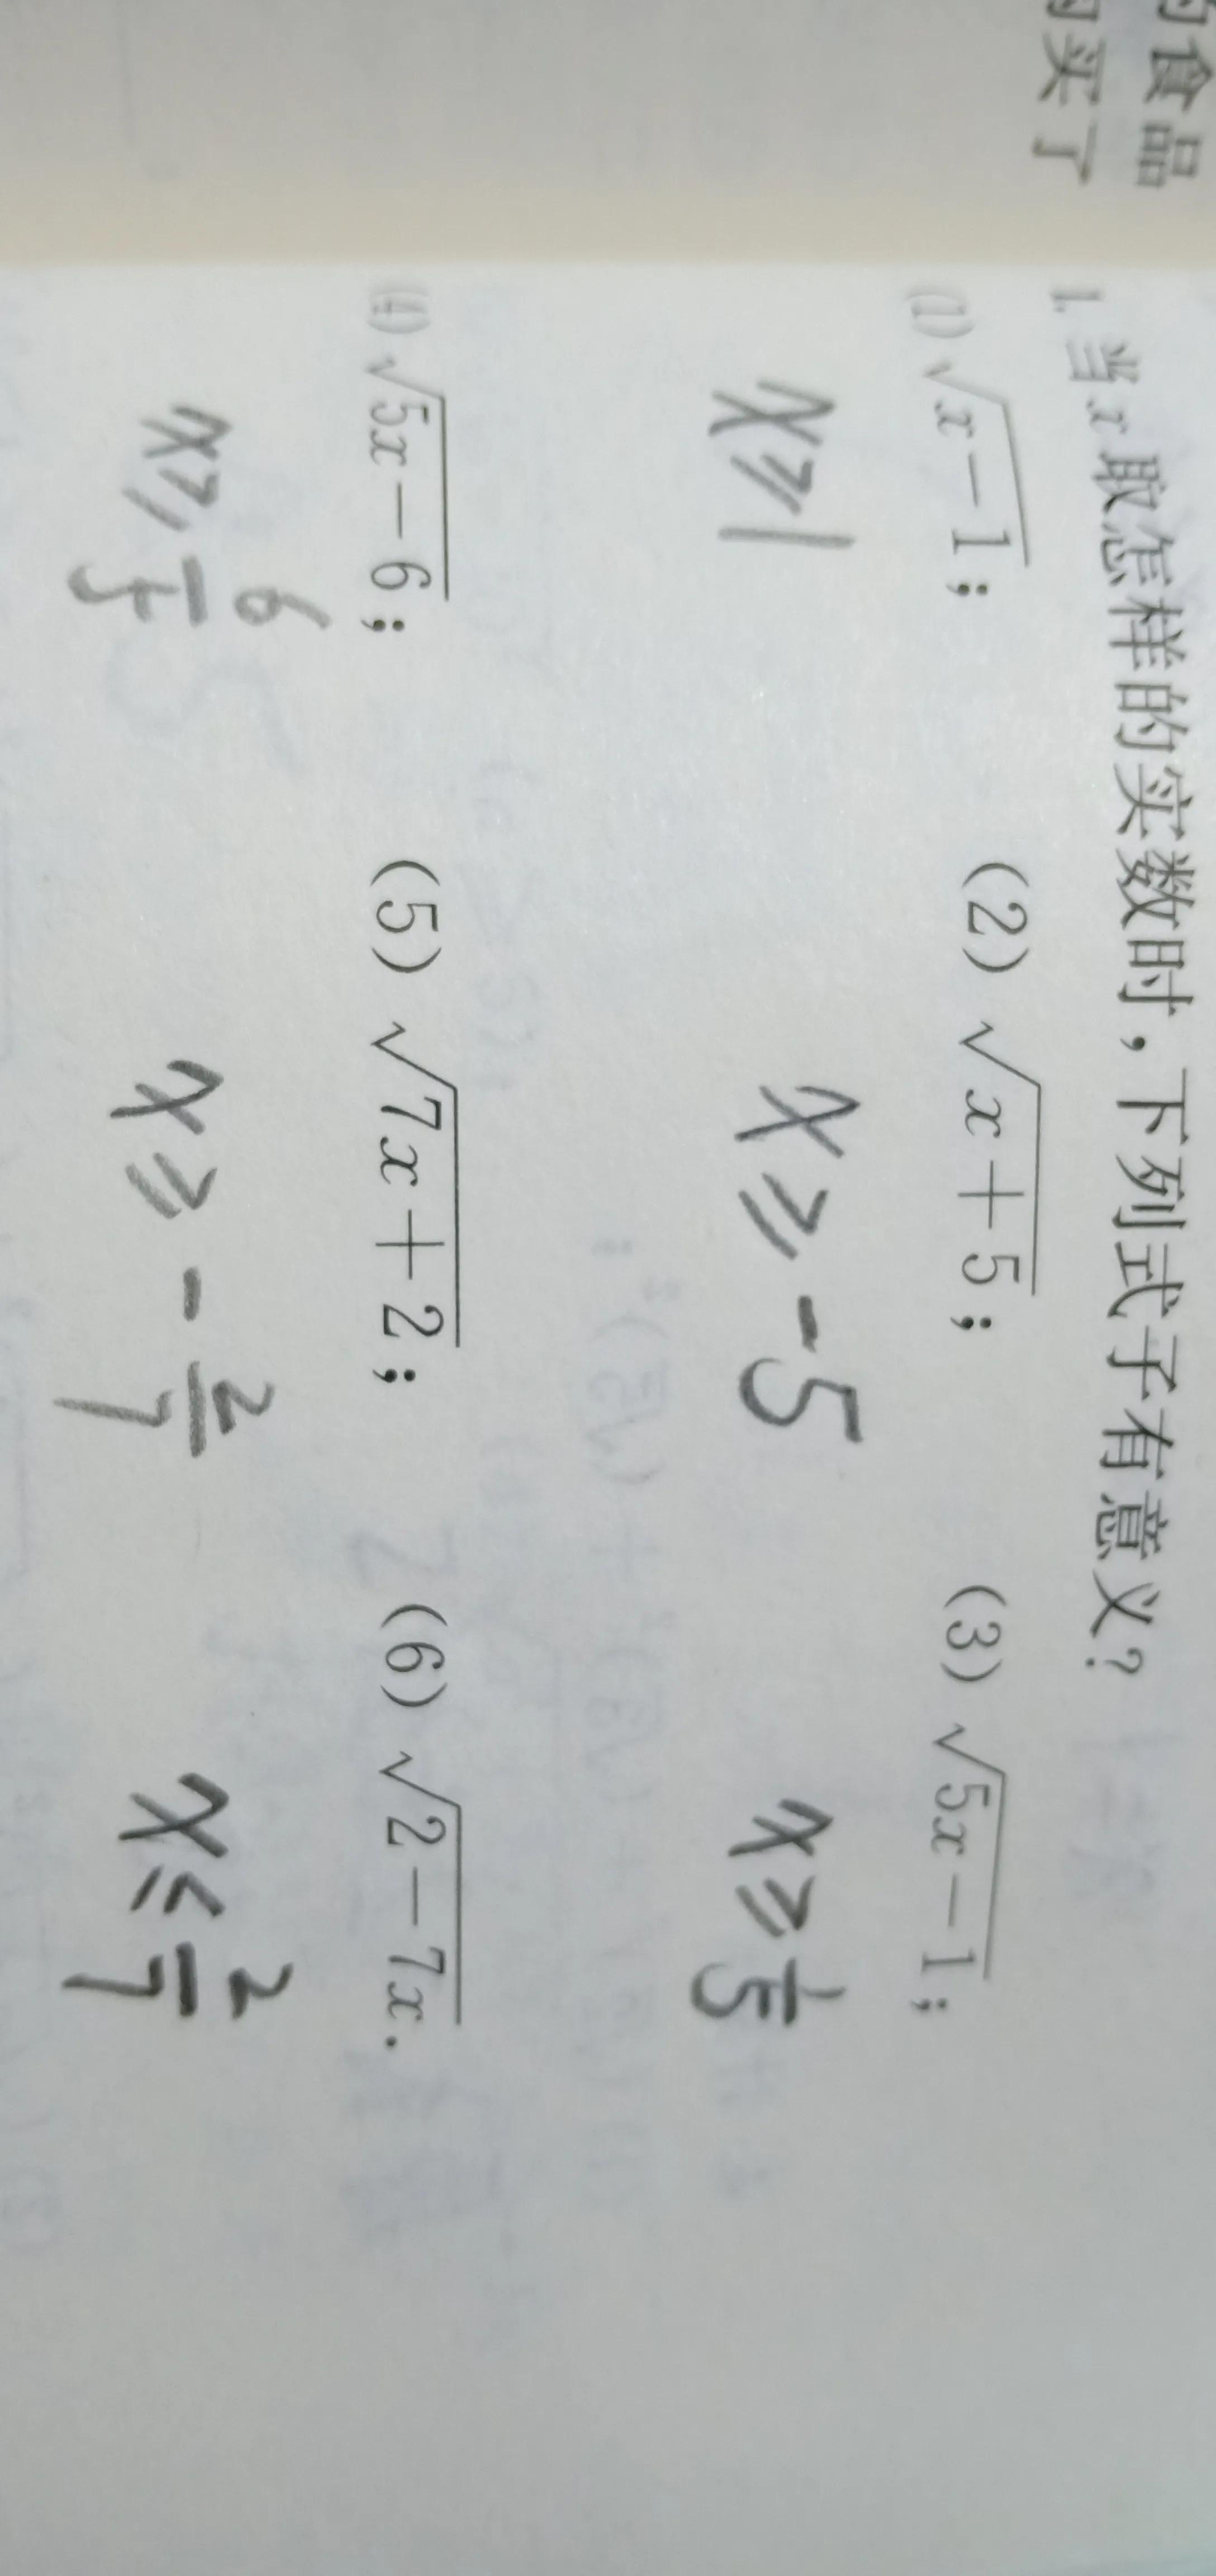 的食品
买了
1. 当x取怎样的实数时,下列式子有意义?
(1) √(x-1); (2) √(x+5); (3) √(5x-1);
x≥1 x≥-5 x≥1/5
(4) √(5x-6); (5) √(7x+2); (6) √(2-7x).
x≥6/5 x≥-2/7 x≤2/7